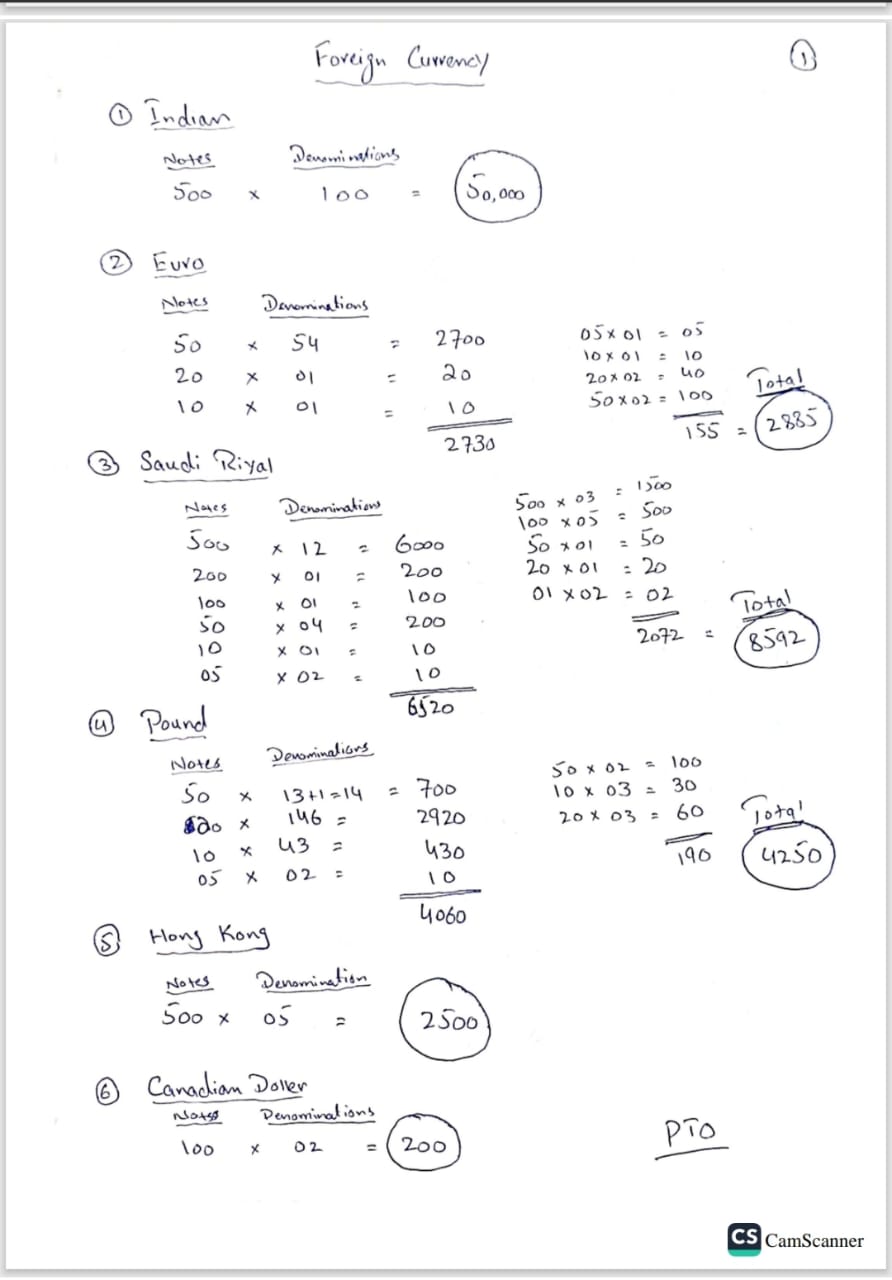 Foreign Currency
1
① Indian
Notes Denominations
500 x 100 = 50,000
② Euro
Notes Denominations
50 x 54 = 2700
20 x 01 = 20
10 x 01 = 10
2730
05 x 01 = 05
10 x 01 = 10
20 x 02 = 40
50 x 02 = 100
Total
155 = 2885
③ Saudi Riyal
Notes Denominations
500 x 12 = 6000
200 x 01 = 200
100 x 01 = 100
50 x 04 = 200
10 x 01 = 10
05 x 02 = 10
6520
500 x 03 = 1500
100 x 05 = 500
50 x 01 = 50
20 x 01 = 20
01 x 02 = 02
Total
2072 = 8592
④ Pound
Notes Denominations
50 x 13+1=14 = 700
20 x 146 = 2920
10 x 43 = 430
05 x 02 = 10
4060
50 x 02 = 100
10 x 03 = 30
20 x 03 = 60
Total
190 4250
⑤ Hong Kong
Notes Denomination
500 x 05 = 2500
⑥ Canadian Doller
Notes Denominations
100 x 02 = 200
PTO
CS CamScanner